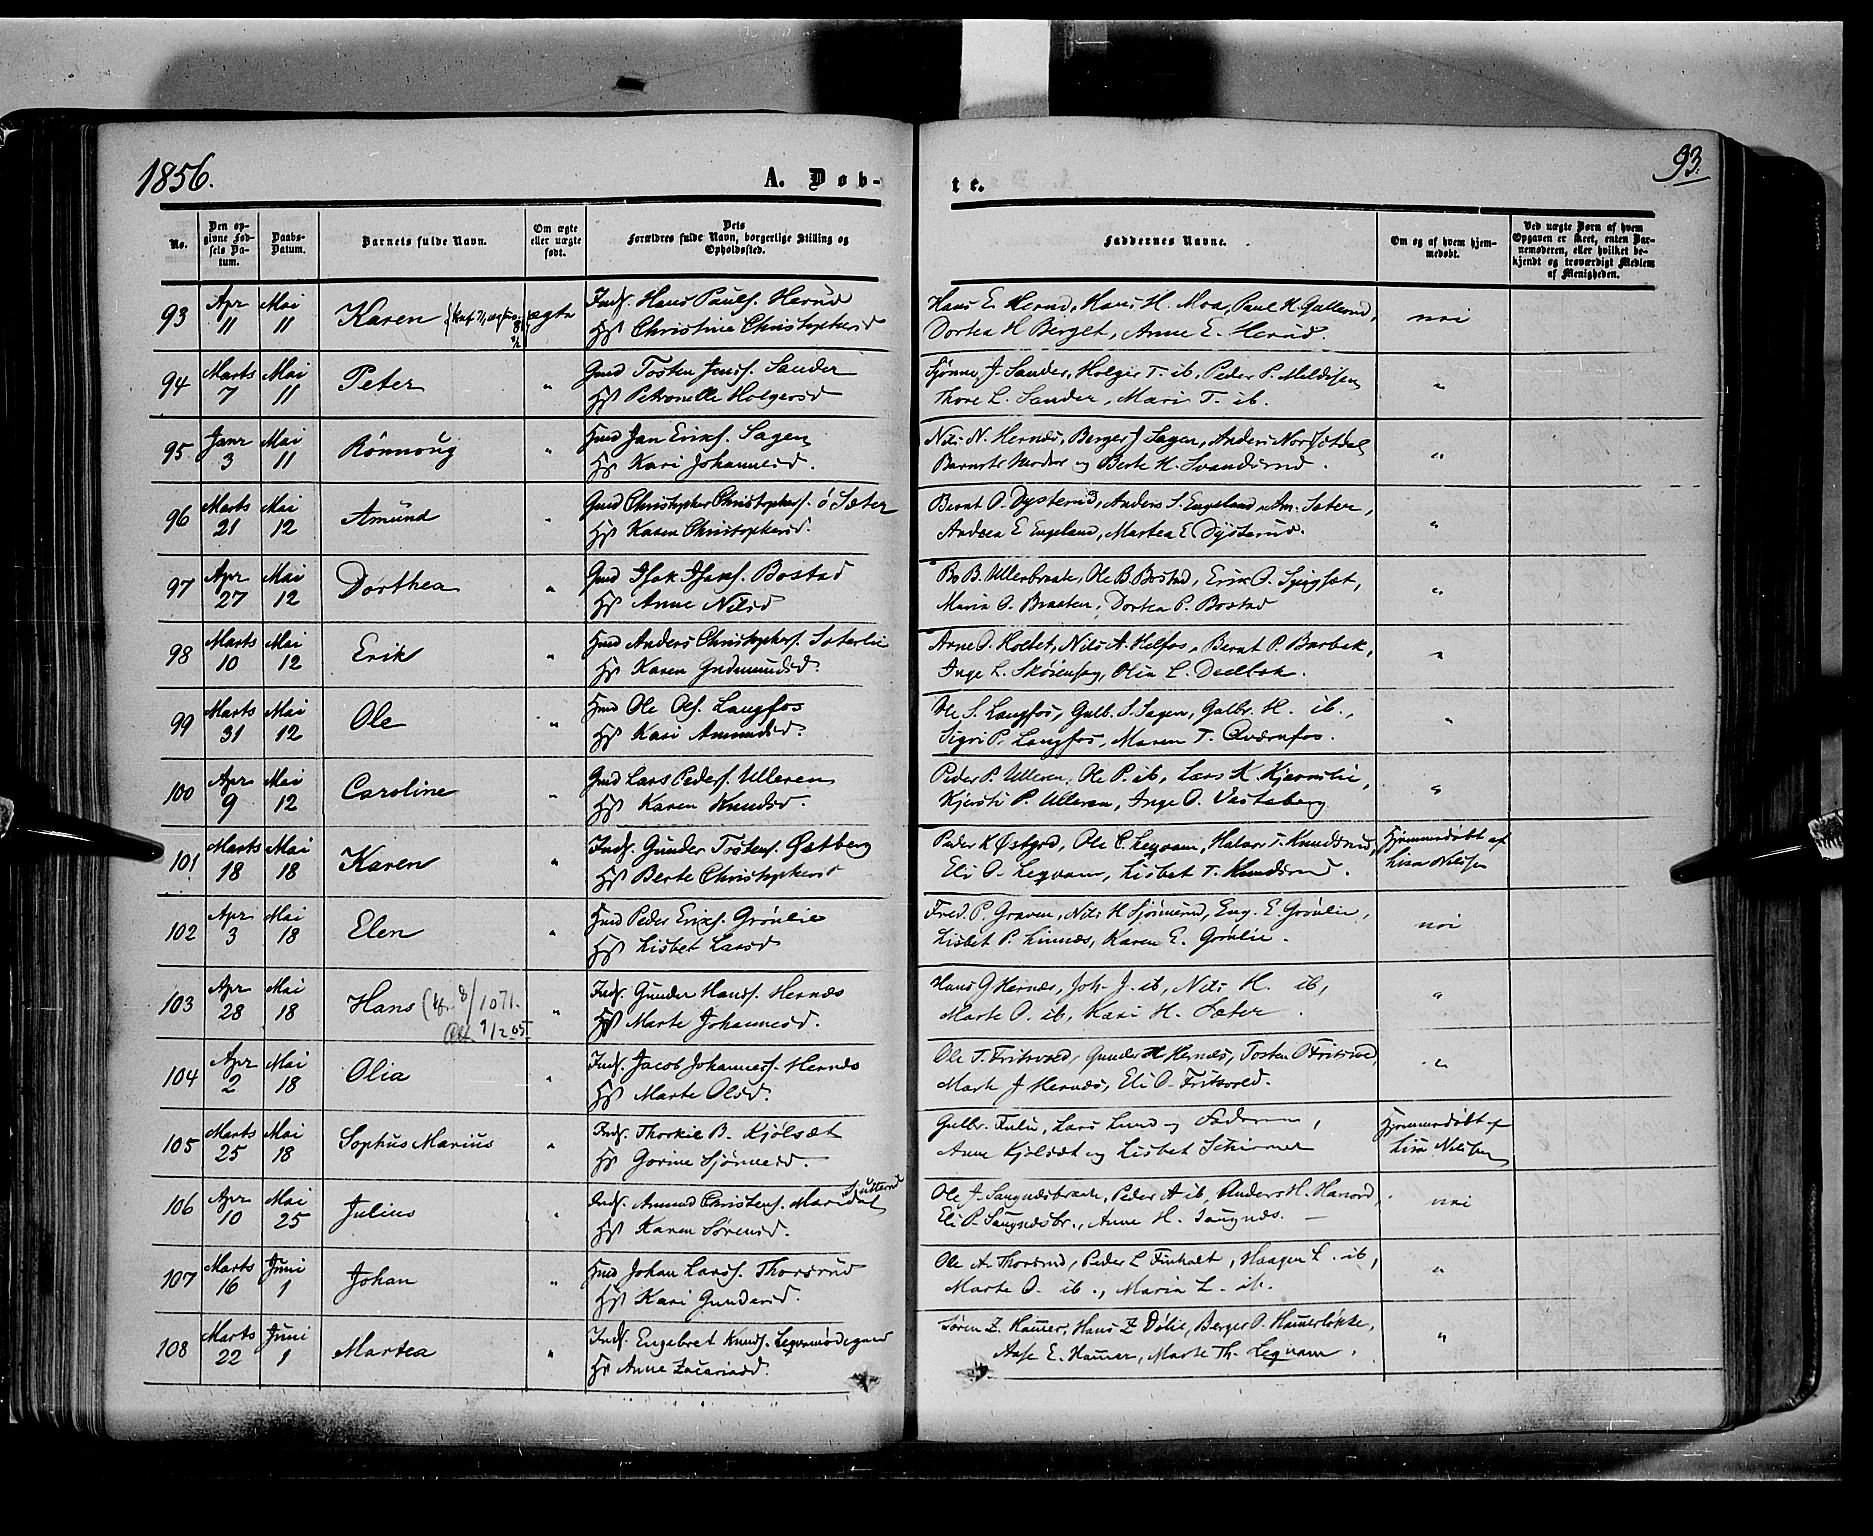 1856.
A. Døb-
te.
93.
No.
Den op-
givne Fød-
sels Da-
tum.
Daabs-
Datum.
Barnets fulde Navn.
Om ægte
eller uægte
født.
Dets
Forældres fulde Navn, borgerlige Stilling og
Opholdssted.
Faddernes Navne.
Om og af hvem hjem-
medøbt.
Ved uægte Børn af hvem
Opgaven er skeet, enten Bar-
nemoderen, eller hvilket be-
kjendt og troværdigt Medlem
af Menigheden.
93 Apr 11 Mai 11 Karen ægte
Inds. Hans Pauls. Herud
Hs Christine Christophersd
Hans E. Herud, Hans H. Moa, Paul H. Gullerud,
Dortea H Berget, Anne E. Herud.
nei
94 Marts 7 Mai 11 Peter "
Gmd Tosten Jens. Sander
Hs Petronelle Holgersd
Sjønne J. Sander, Holger T. ib, Peder P. Meldisen
Thore L. Sander, Mari T. ib.
"
95 Janr 3 Mai 11 Rønnoug "
Hmd Jan Eriks. Sagen
Hs Kari Johannesd.
Nils N. Hernæs, Berger J Sagen, Anders Nor
Barnets Moder og Berte H. Svandsrud.
"
96 Marts 21 Mai 12 Amund "
Gmd Christopher Christophers. ø Sæter
Hs Karen Christophersd.
Bernt O. Dysterud, Anders S. Engeland, Am. Sæter,
Andrea E Engeland, Martea E. Dysterud.
"
97 Apr 27 Mai 12 Dorthea "
Gmd Isak Isaks. Bostad
Hs Anne Nilsd
Bo B. Ullerbraate, Ole B. Bostad, Erik O.
Maria O. Braaten, Dortea P. Bostad
"
98 Marts 10 Mai 12 Erik "
Hmd Anders Christophers. Sæterlie
Hs Karen Gudmundsd.
Arne O. Holtet, Nils A. Helfos, Bernt P. Barbak,
Inge L. Olia L.
"
99 Marts 31 Mai 12 Ole "
Hmd Ole Ols. Langfos
Hs Kari Amundsd.
Ole S. Langfos, Gulb. S. Sagen, Gulbr. H. ib.,
Sigri P. Langfos, Maren T. Qværnfos.
"
100 Apr 9 Mai 12 Caroline "
Gmd Lars Peders. Ulleren
Hs Karen Knudsd.
Peder P. Ulleren, Ole P. ib, Lars K. Kjernslie,
Kjersti P. Ulleren, Inge O. Vestaberg
"
101 Marts 18 Mai 18 Karen "
Inds. Gunder Tostens. Østberg
Hs Berte Christophersd
Peder K Østgrd, Ole C. Leqvam, Halvor T. Knudsrud,
Eli O. Leqvam, Lisbet T. Knudsrud.
Hjemmedøbt af
Lisa Nilsen
102 Apr 3 Mai 18 Elen "
Hmd Peder Eriks. Grønlie
Hs Lisbet Larsd
Fred. P. Graven, Nils H Sjønnerud, Eng. E. Grønlie,
Lisbet P. Linnæs, Karen E. Grønlie.
nei
103 Apr 28 Mai 18 Hans "
Inds. Gunder Hans. Hernæs
Hs Marte Johannesd.
Hans G Hernæs, Joh. J. ib, Nils H. ib,
Marte O. ib, Kari H. Sæter.
"
104 Apr 2 Mai 18 Olia "
Inds. Jacob Johanness. Hernæs
Hs Marte Olsd.
Ole T. Fritsvold, Gunder H Hernæs, Tosten O Fritsvold,
Marte J Hernæs, Eli O. Fritsvold.
"
105 Marts 25 Mai 18 Sophus Marius "
Inds. Thorkil B. Kjølsæt
Hs Gorine Sjønnesd.
Gulbr. Fulu, Lars Lund og Faderen,
Anne Kjølsæt og Lisbet Schirmer
Hjemmedøbt af
Lisa Nilsen
106 Apr 10 Mai 25 Julius "
Inds. Amund Christens. Maridal
Hs Karen Sørensd.
Ole J. Saugnæsbraate, Peder A ib, Anders H. Hanord,
Eli P. Saugnæsbr., Anne H. Saugnæs.
nei
107 Marts 16 Juni 1 Johan "
Hmd Johan Larss. Thorsrud
Hs Kari Gundersd.
Ole A. Thorsrud, Peder L Finholt, Haagen L. ib,
Marte O. ib., Maria L. ib.
"
108 Marts 22 Juni 1 Martea "
Inds. Engebret Knuds. Leqvamødegaard
Hs Anne Zacariasd.
Søren Z. Hauer, Hans Z Dølie, Berger O. Hauerløkke,
Aase E. Hauer, Marte Th. Leqvam.
"